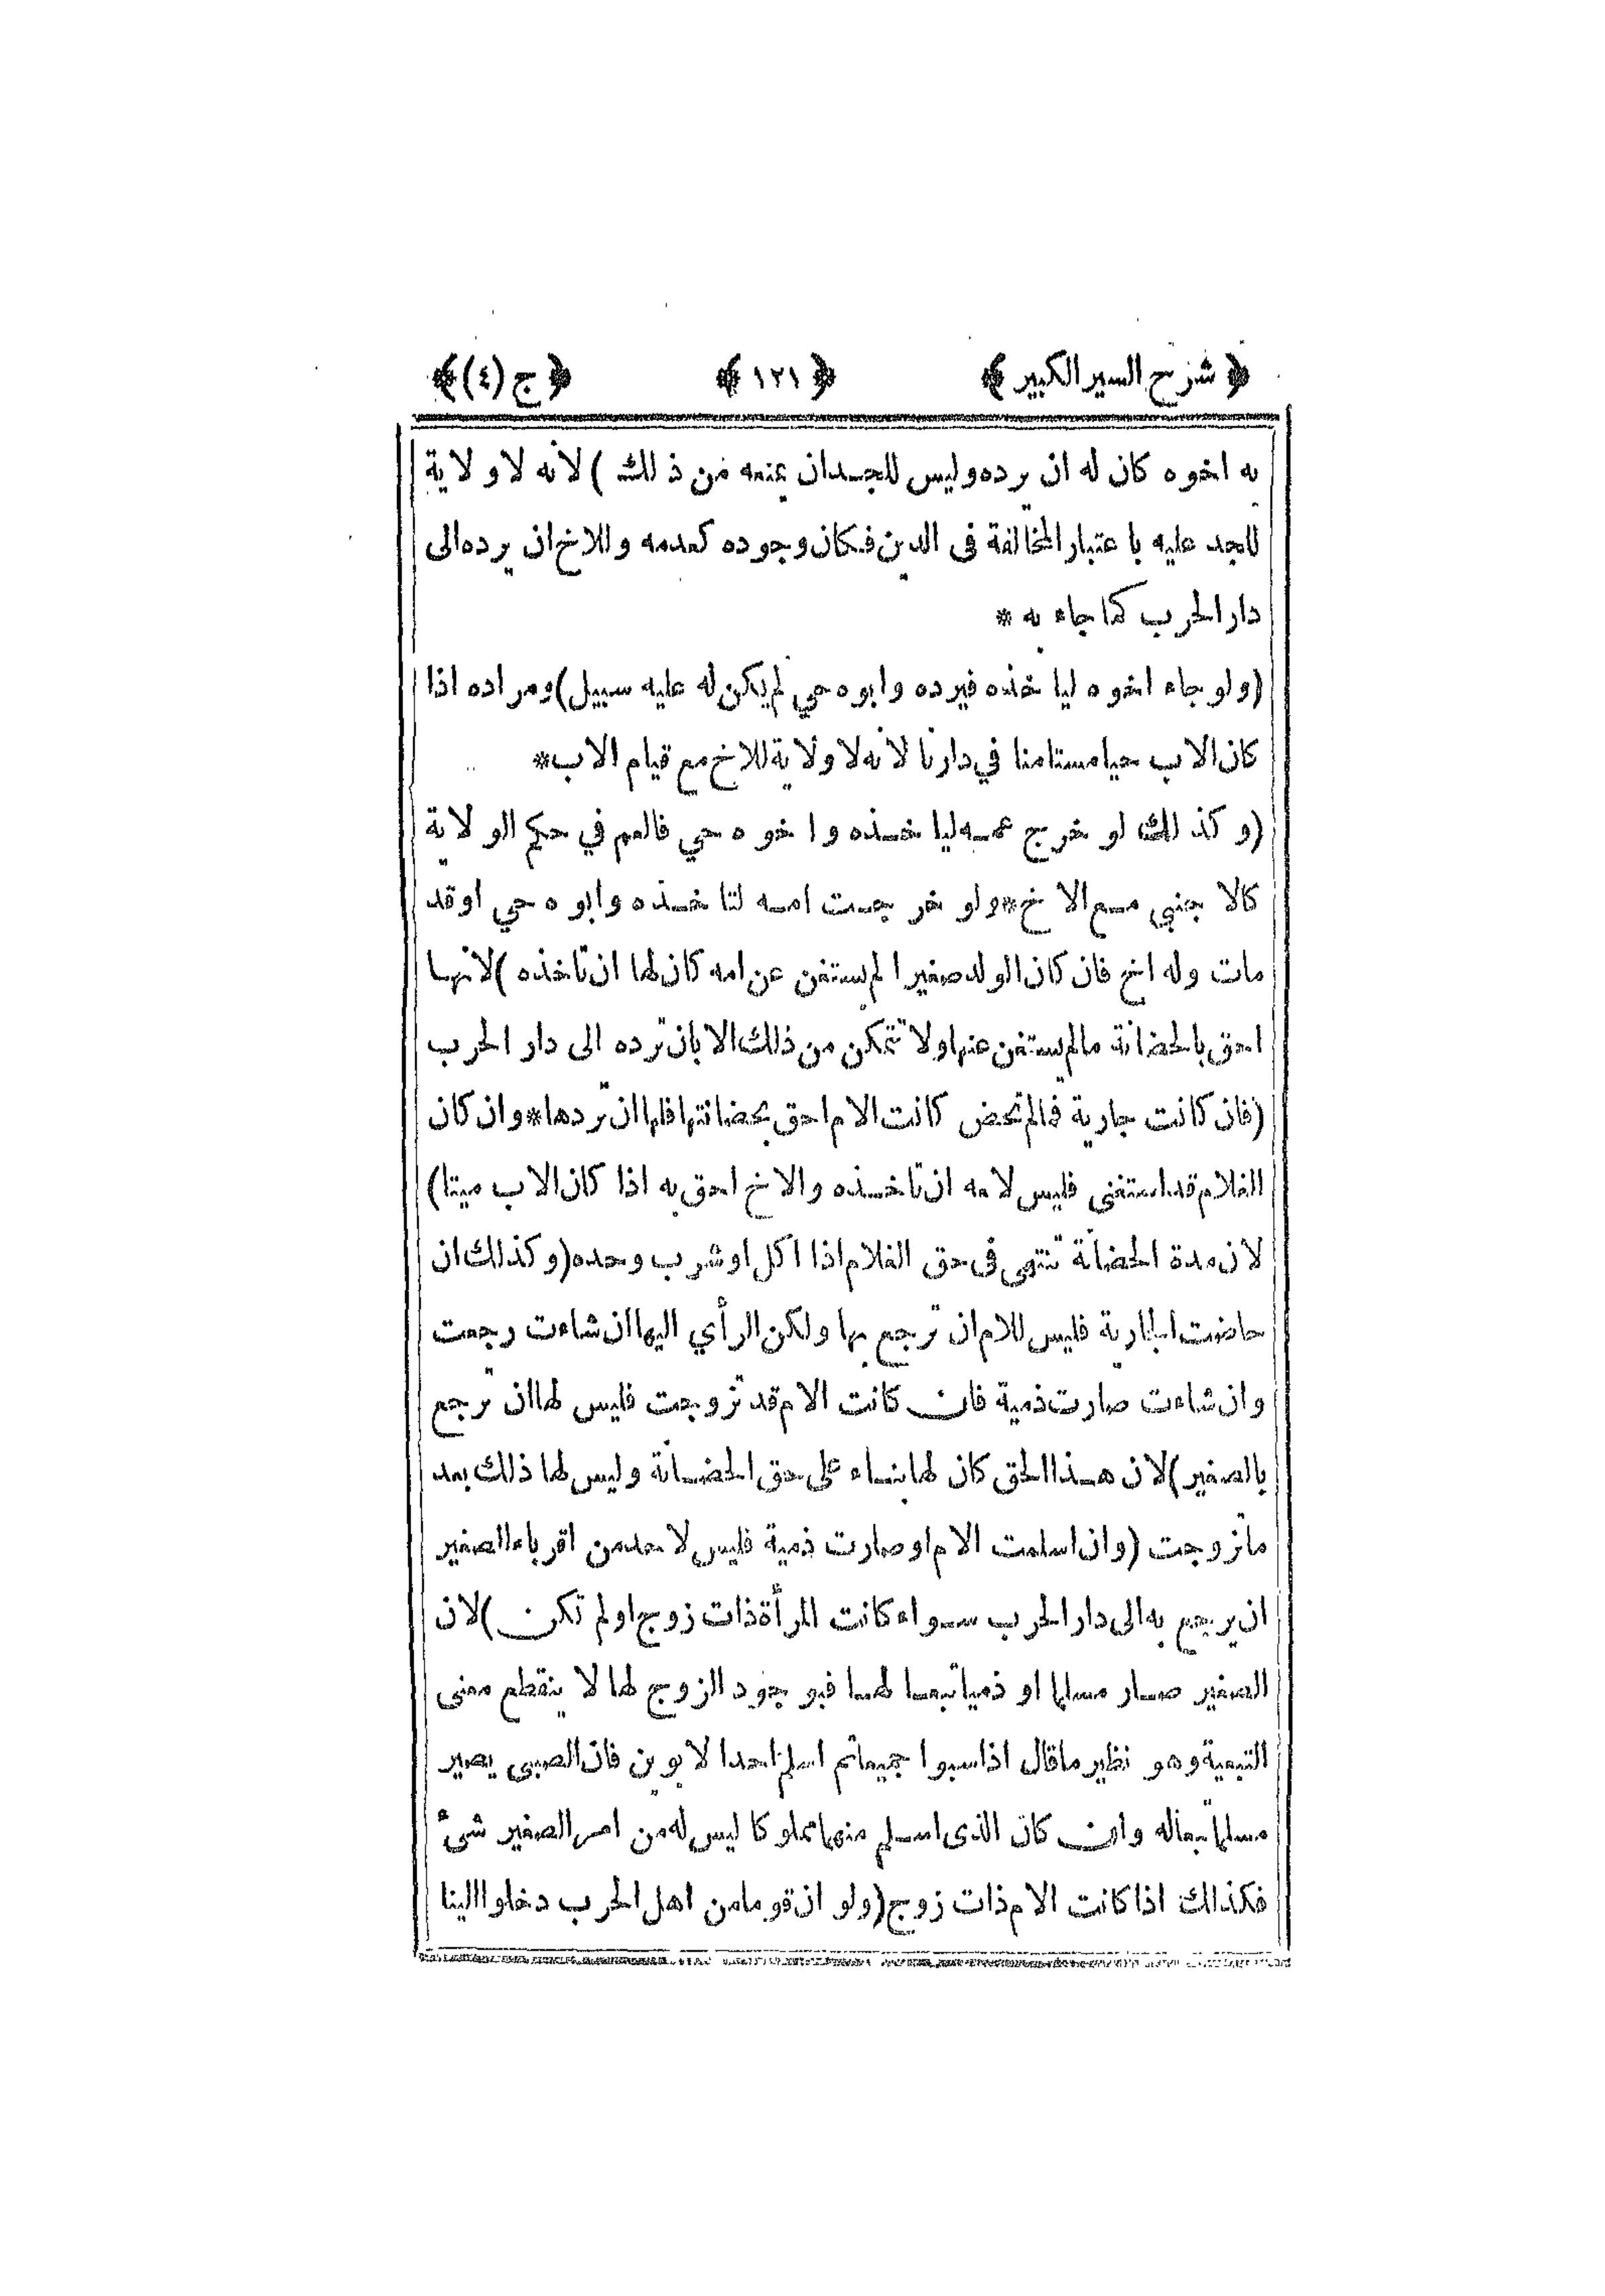 ﴿ شرح السير الكبير ﴾ ﴿ ١٢١ ﴾ ﴿ ج (٤) ﴾
به اخوه كان له ان يرده وليس للجد ان يمنعه من ذلك ) لانه لا ولاية
للجد عليه باعتبار المخالفة فى الدين فكان وجوده كعدمه وللاخ ان يرده الى
دار الحرب كما جاء به *
(ولو جاء اخوه ليأخذه فيرده وابوه حي لم يكن له عليه سبيل) ومراده اذا
كان الاب حيا مستامنا في دارنا لانه لا ولاية للاخ مع قيام الاب*
(وكذلك لو خرج عمه لياخذه واخوه حي فالعم في حكم الولاية
كالاجنبي مع الاخ*ولو خرجت امه لتاخذه وابوه حي اوقد
مات وله اخ فان كان الولد صغيرا لم يستغن عن امه كان لها ان تاخذه )لانها
احق بالحضانة مالم يستغن عنها ولا تتمكن من ذلك الا بان ترده الى دار الحرب
(فان كانت جارية فمالم تحض كانت الام احق بحضانتها فلها ان تردها*وان كان
الغلام قد استغنى فليس لامه ان تاخذه والاخ احق به اذا كان الاب ميتا)
لان مدة الحضانة تنتهى فى حق الغلام اذا اكل اوشرب وحده(وكذلك ان
حاضت الجارية فليس للام ان ترجع بها ولكن الرأي اليها ان شاءت رجعت
وان شاءت صارت ذمية فان كانت الام قد تزوجت فليس لها ان ترجع
بالصغير)لان هذا الحق كان لها بناء على حق الحضانة وليس لها ذلك بعد
ماتزوجت (وان اسلمت الام اوصارت ذمية فليس لاحد من اقرباء الصغير
ان يرجع به الى دار الحرب سواء كانت المرأة ذات زوج اولم تكن )لان
الصغير صار مسلما او ذميا تبعا لها فبوجود الزوج لها لا ينقطع معنى
التبعية وهو نظير ماقال اذا سبوا جميعا ثم اسلم احد الابوين فان الصبى يصير
مسلما تبعا له وان كان الذى اسلم منهما مملوكا ليس له من امر الصغير شئ
فكذلك اذا كانت الام ذات زوج(ولو ان قوما من اهل الحرب دخلوا الينا